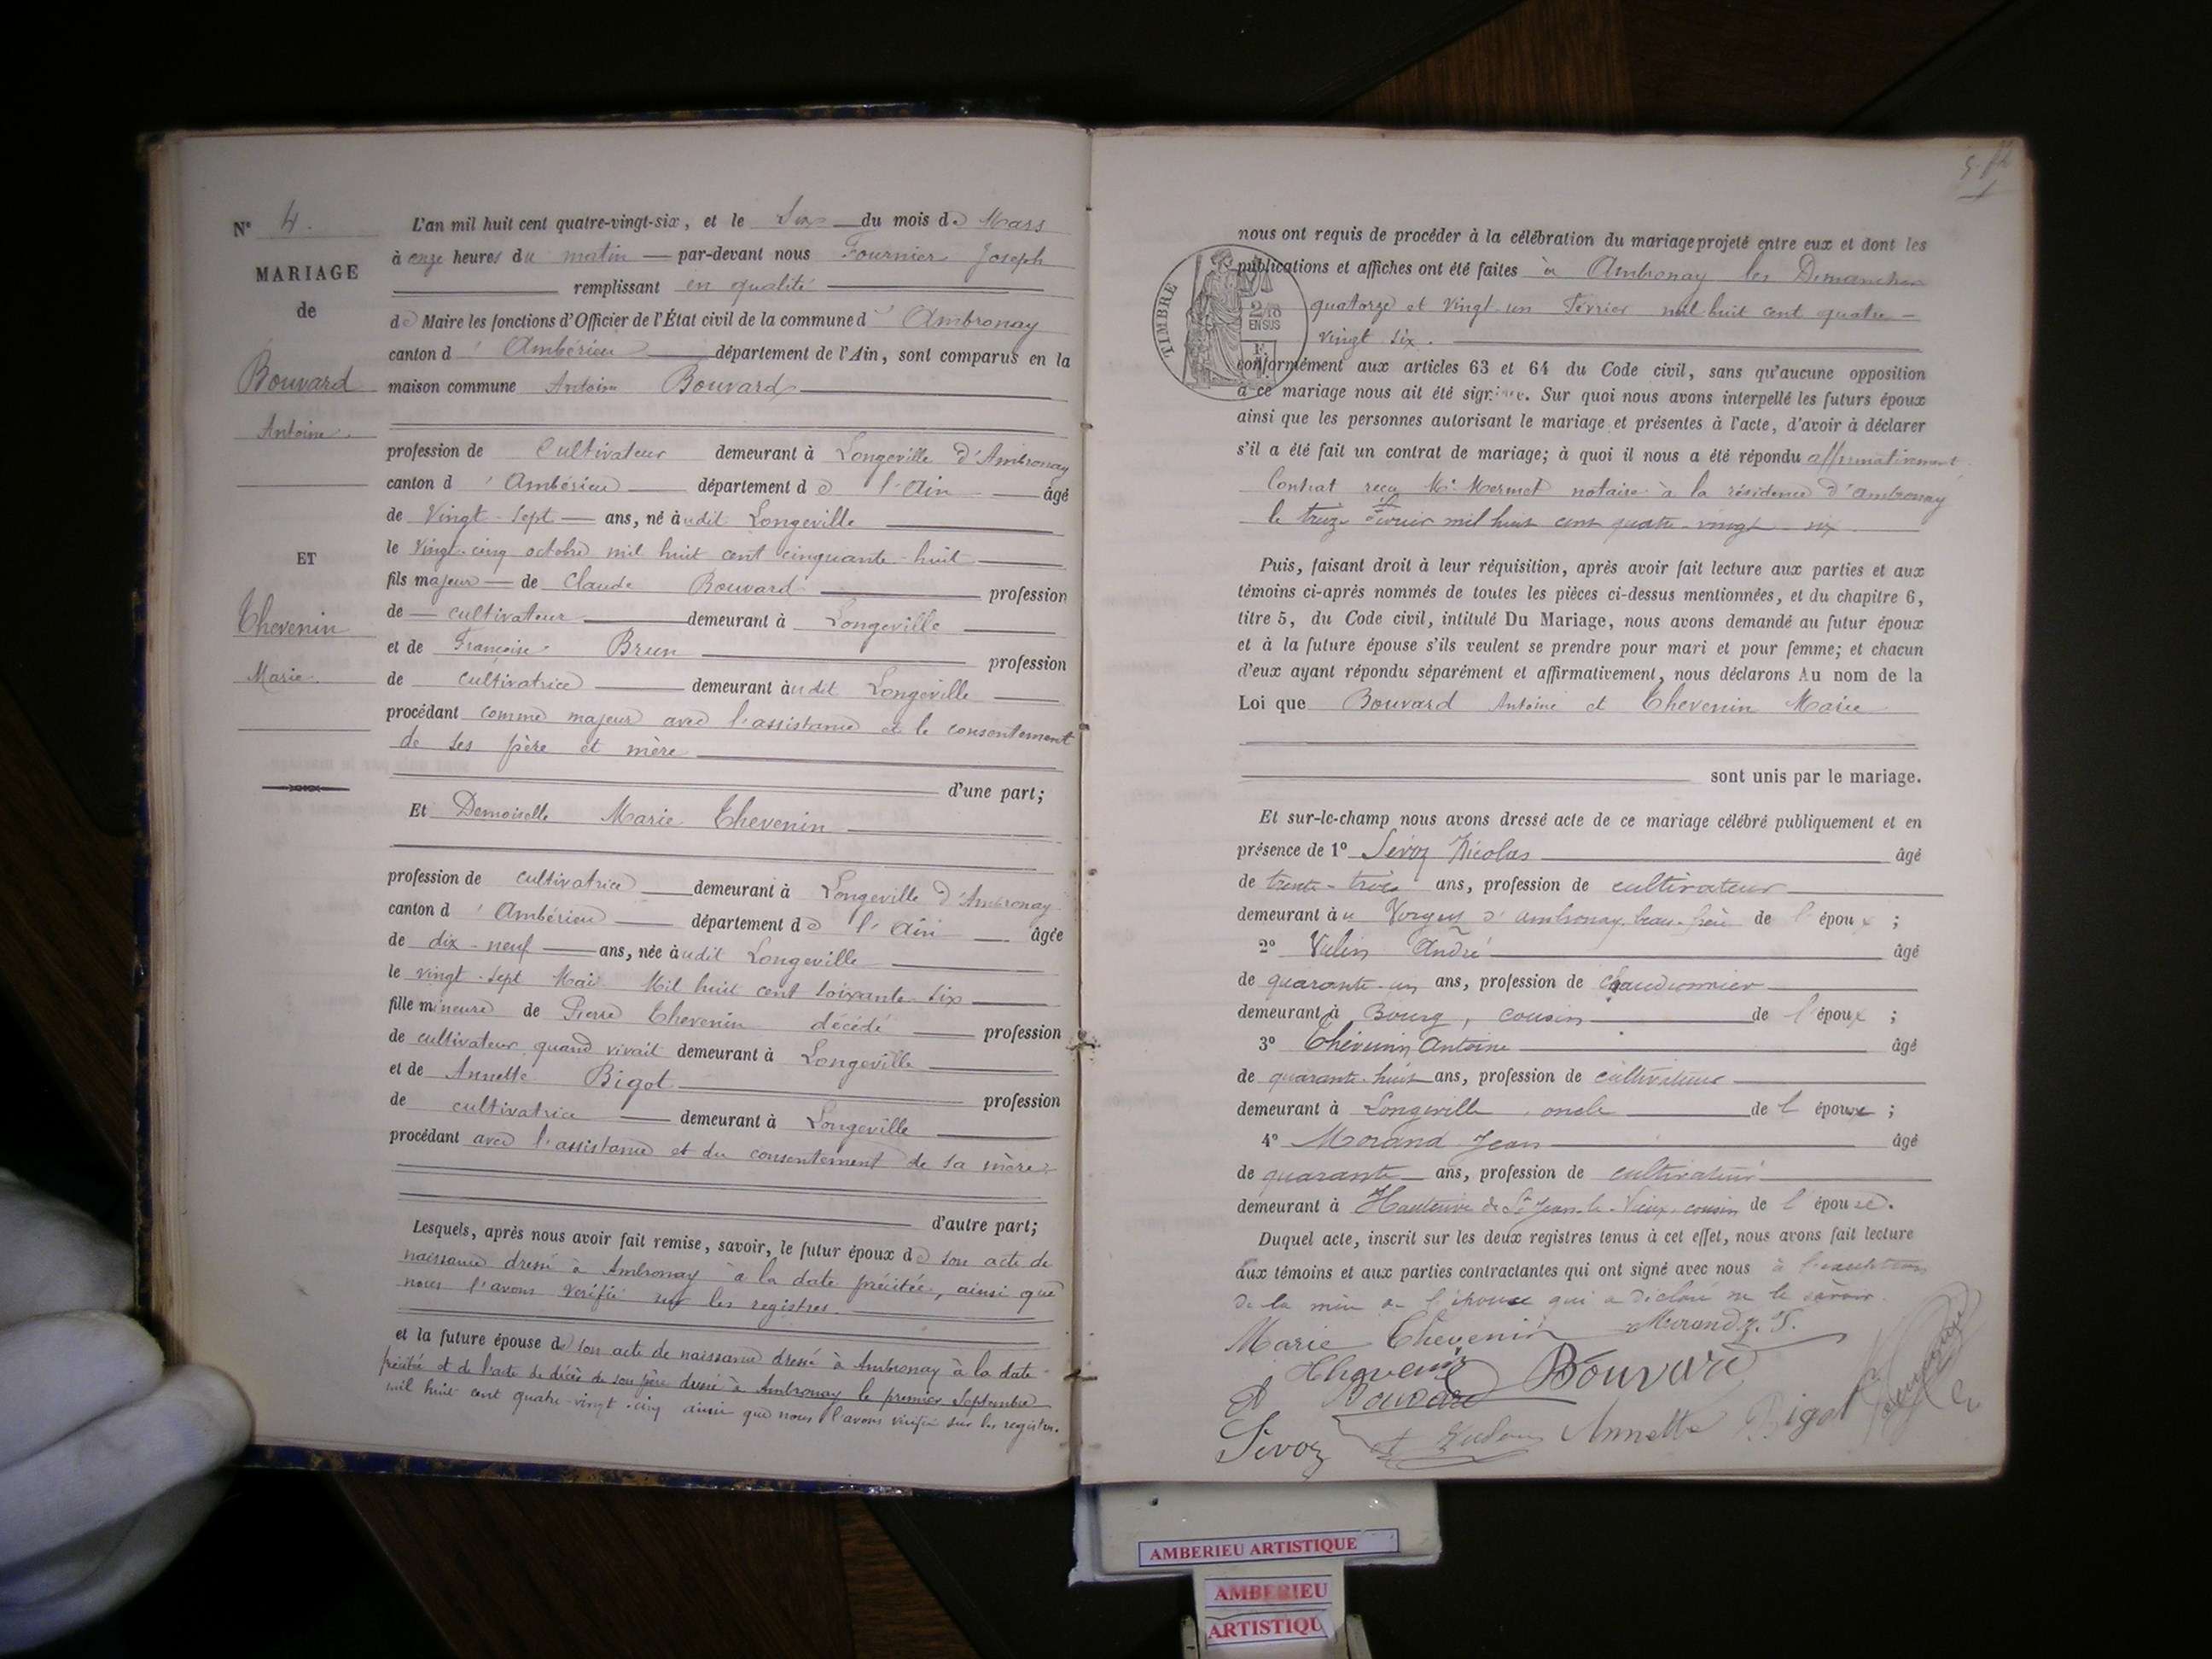 N° 4.
MARIAGE
de
Bouvard
Antoine
ET
Thevenin
Marie
L'an mil huit cent quatre-vingt-six, et le Six du mois de Mars
à onze heures du matin par-devant nous Fournier Joseph
remplissant en qualité
de Maire les fonctions d'Officier de l'État civil de la commune d'Ambronay
canton d'Ambérieu département de l'Ain, sont comparus en la
maison commune Antoine Bouvard
profession de Cultivateur demeurant à Longeville d'Ambronay
canton d'Ambérieu département de l'Ain âgé
de Vingt-sept ans, né audit Longeville
le Vingt-cinq octobre mil huit cent cinquante-huit
fils majeur de Claude Bouvard profession
de cultivateur demeurant à Longeville
et de Françoise Brun profession
de cultivatrice demeurant audit Longeville
procédant comme majeur avec l'assistance et le consentement
de ses père et mère
d'une part;
Et Demoiselle Marie Thevenin
profession de cultivatrice demeurant à Longeville d'Ambronay
canton d'Ambérieu département de l'Ain âgée
de dix-neuf ans, née audit Longeville
le vingt-sept Mai Mil huit cent soixante-six
fille mineure de Pierre Thevenin décédé profession
de cultivateur quand vivait demeurant à Longeville
et de Annette Bigot profession
de cultivatrice demeurant à Longeville
procédant avec l'assistance et du consentement de sa mère
d'autre part;
Lesquels, après nous avoir fait remise, savoir, le futur époux de son acte de
naissance dressé à Ambronay à la date précitée, ainsi que
nous l'avons vérifié sur les registres.
et la future épouse de son acte de naissance dressé à Ambronay à la date
précitée et de l'acte de décès de son père dressé à Ambronay le premier Septembre
mil huit cent quatre-vingt-cinq ainsi que nous l'avons vérifié sur les registres.
nous ont requis de procéder à la célébration du mariage projeté entre eux et dont les
publications et affiches ont été faites à Ambronay les Dimanches
quatorze et vingt-un Février mil huit cent quatre-
vingt-six.
TIMBRE
2/10
EN SUS
conformément aux articles 63 et 64 du Code civil, sans qu'aucune opposition
à ce mariage nous ait été signifiée. Sur quoi nous avons interpellé les futurs époux
ainsi que les personnes autorisant le mariage et présentes à l'acte, d'avoir à déclarer
s'il a été fait un contrat de mariage; à quoi il nous a été répondu affirmativement
Contrat reçu Me Mermet notaire à la résidence d'Ambronay
le treize février mil huit cent quatre-vingt-six
Puis, faisant droit à leur réquisition, après avoir fait lecture aux parties et aux
témoins ci-après nommés de toutes les pièces ci-dessus mentionnées, et du chapitre 6,
titre 5, du Code civil, intitulé Du Mariage, nous avons demandé au futur époux
et à la future épouse s'ils veulent se prendre pour mari et pour femme; et chacun
d'eux ayant répondu séparément et affirmativement, nous déclarons Au nom de la
Loi que Bouvard Antoine et Thevenin Marie
sont unis par le mariage.
Et sur-le-champ nous avons dressé acte de ce mariage célébré publiquement et en
présence de 1° Sevoz Nicolas âgé
de trente-trois ans, profession de cultivateur
demeurant au d'Ambronay beau-frère de l'époux;
2° André âgé
de quarante-un ans, profession de chaudronnier
demeurant à Bourg, cousin de l'époux;
3° Thévenin Antoine âgé
de quarante-huit ans, profession de cultivateur
demeurant à Longeville, oncle de l'épouse;
4° Morand Jean âgé
de quarante ans, profession de cultivateur
demeurant à Hauterive de St Jean-le-Vieux cousin de l'épouse.
Duquel acte, inscrit sur les deux registres tenus à cet effet, nous avons fait lecture
aux témoins et aux parties contractantes qui ont signé avec nous à l'exception
de la mère de l'épouse qui a déclaré ne le savoir.
Marie Thevenin Morand J.
Thevenin
Bouvard Bouvard
Sevoz Annette Bigot
AMBERIEU ARTISTIQUE
AMBERIEU
ARTISTIQU